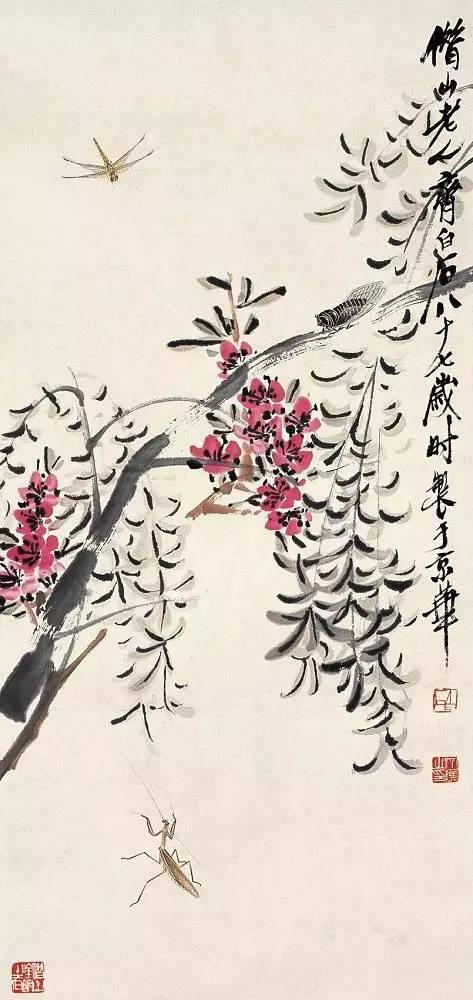 借山老人齊白石八十七歲时製于京華